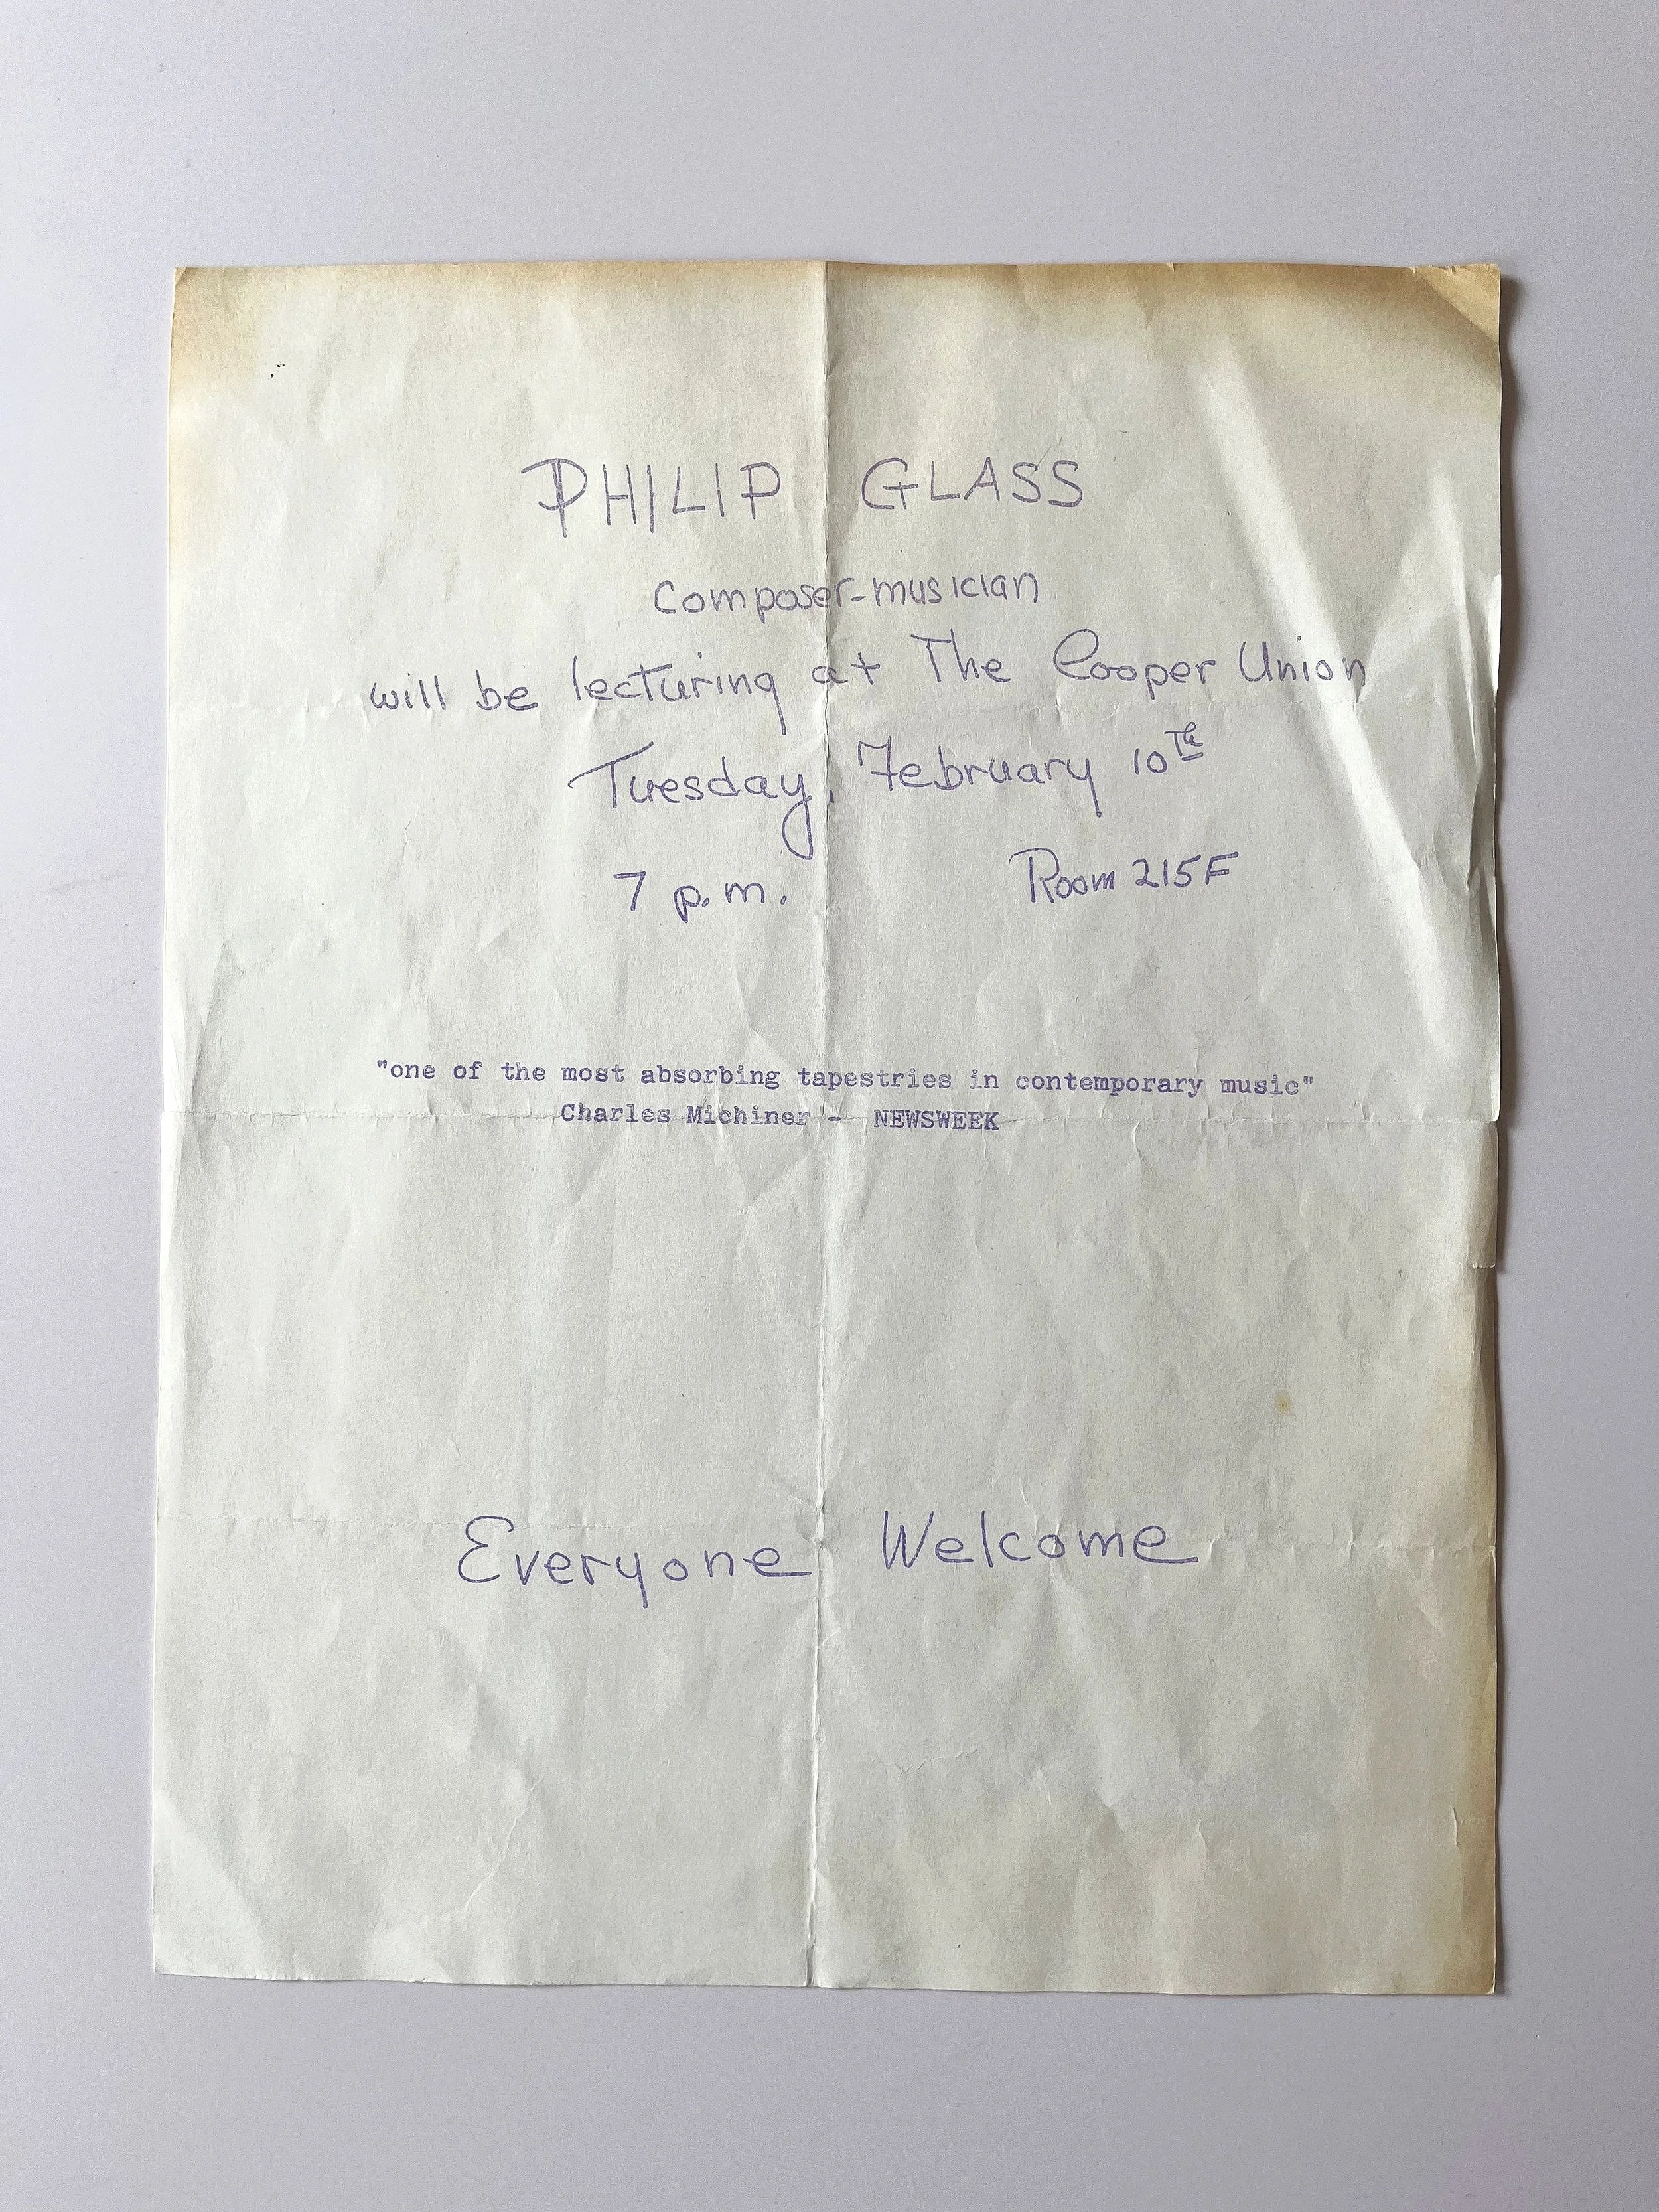 PHILIP GLASS
composer-musician
will be lecturing at The Cooper Union
Tuesday, February 10th
7 p.m. Room 215F
"one of the most absorbing tapestries in contemporary music"
Charles Michiner - NEWSWEEK
Everyone Welcome